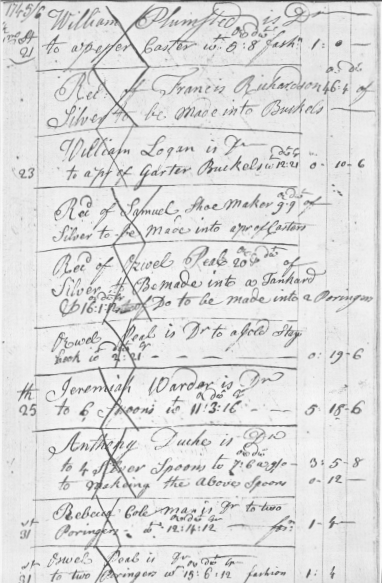 1745/6
William Plumsted is Dr
21 to a pepper Caster wt 5:8 fash 1: 0
Recd of Francis Richardson 46:4 of
Silver to be Made into Buckels
William Logan is Dr
23 to a pr of Garter Buckels wt 12:21 0-10-6
Recd of Samuel Shoe Maker 9:9 of
Silver to be Made into a pr of Casters
Recd of Oswel Peal 20 of
Silver to Be made into a Tankard
16:1:12 of Do to be made into 2 Poringers
Oswel Peal is Dr to a Gold Stay
hook wt 2:21 0:19-6
th Jeremiah Warder is Dr
25 to 6 Spoons wt 11:3:16 5 15-6
Anthony Duche is Dr
to 4 Silver Spoons wt 7:6 3:5-8
to makeing the above Spoons 0-12
st Rebeca Cole man is Dr to two
31 Poringers wt 12:14:12 for 1-4
st Oswel Peal is Dr
31 to two Poringers wt 15:6:12 fashion 1:4